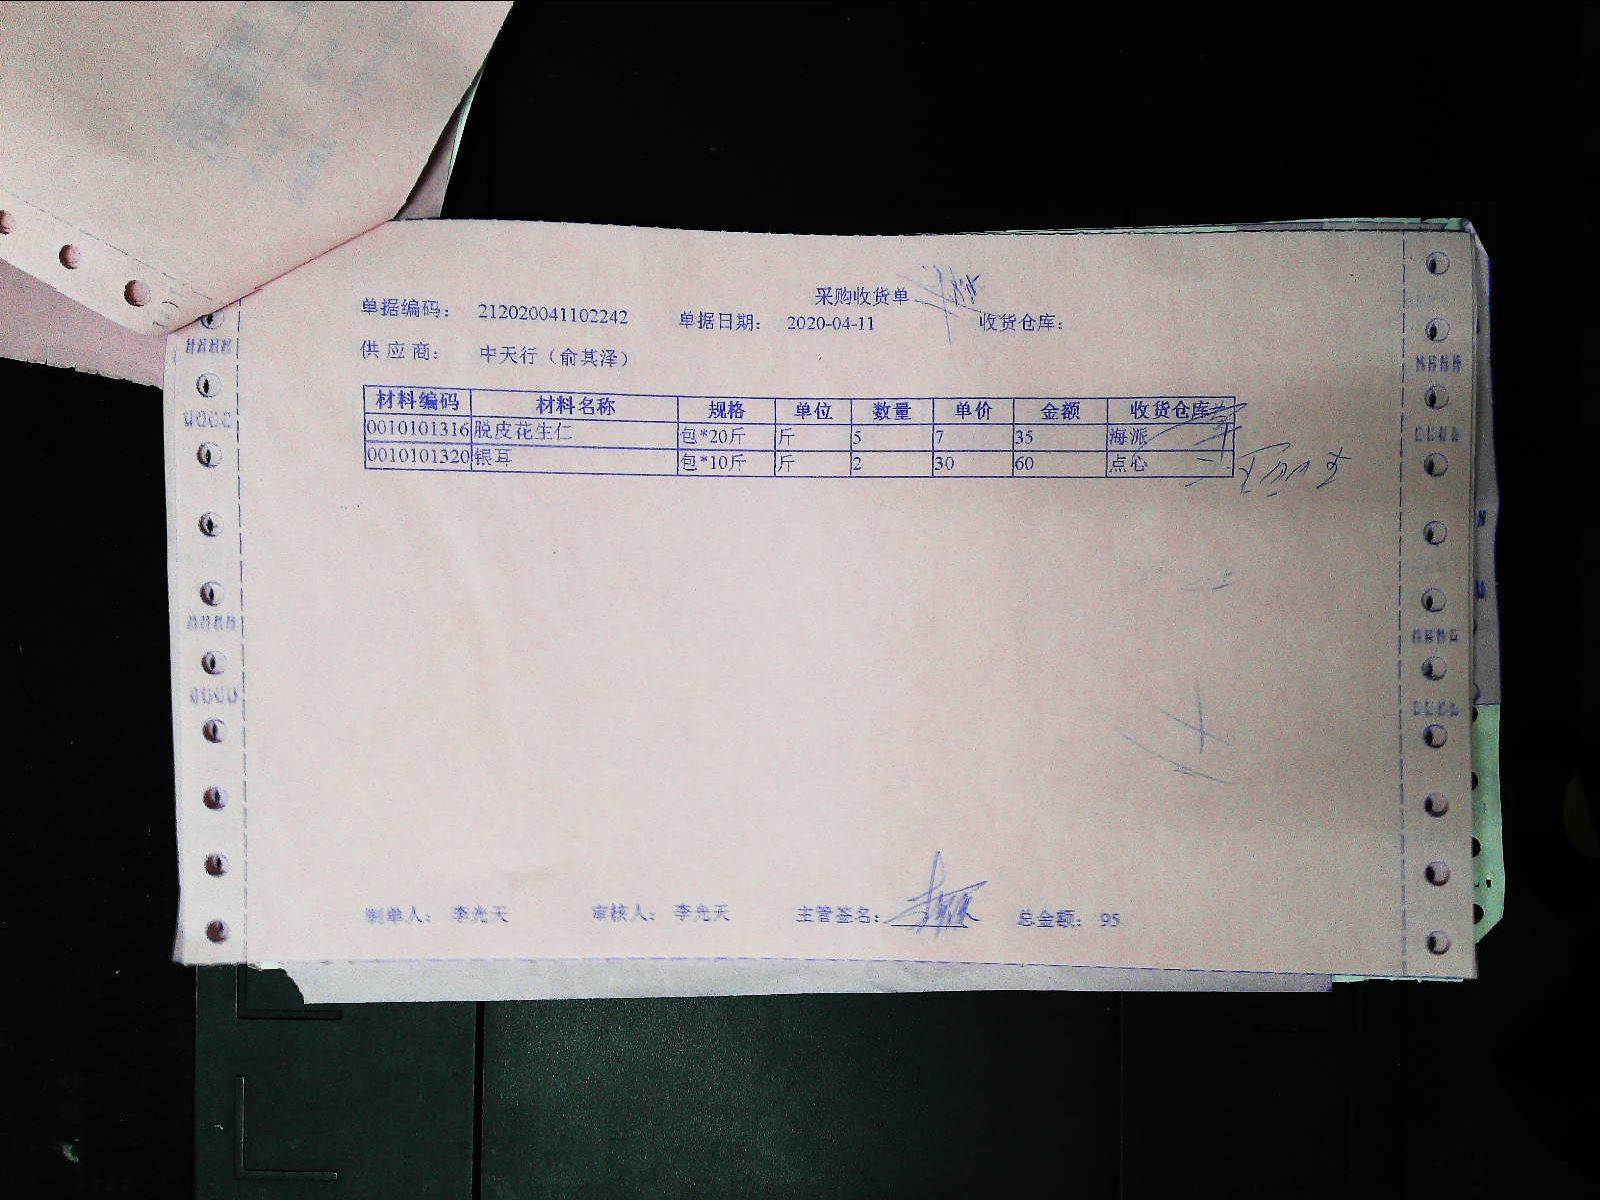 采购收货单
单据编码： 212020041102242 单据日期： 2020-04-11 收货仓库：
供 应 商： 中天行（俞其泽）
材料编码 材料名称 规格 单位 数量 单价 金额 收货仓库
0010101316 脱皮花生仁 包*20斤 斤 5 7 35 海派
0010101320 银耳 包*10斤 斤 2 30 60 点心
制单人： 李光天 审核人： 李光天 主管签名： 总金额： 95